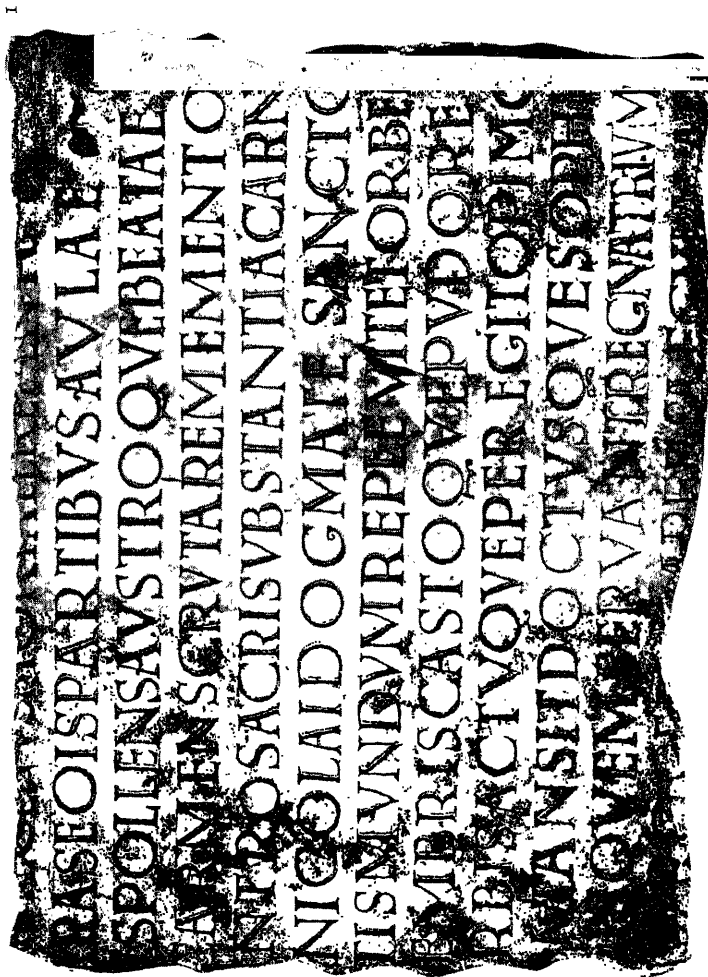 RASEOISPARTIBVSAVLAE
SPOLLENSAVSTROQVEBEATAE
ARMENSCRVTAREMEMENTO
NTROSACRISVBSTANTIACARN
NICOLAIDOGMATE SANCTO
LISMVNDVMREPLEVITETORBE
MPRISCASTOQVEPVDORE
RBISACTVQVEPEREGITOPIMO
MANSITDOCTVSQVESOPH
QVEMPERVANTREGNATRIVM